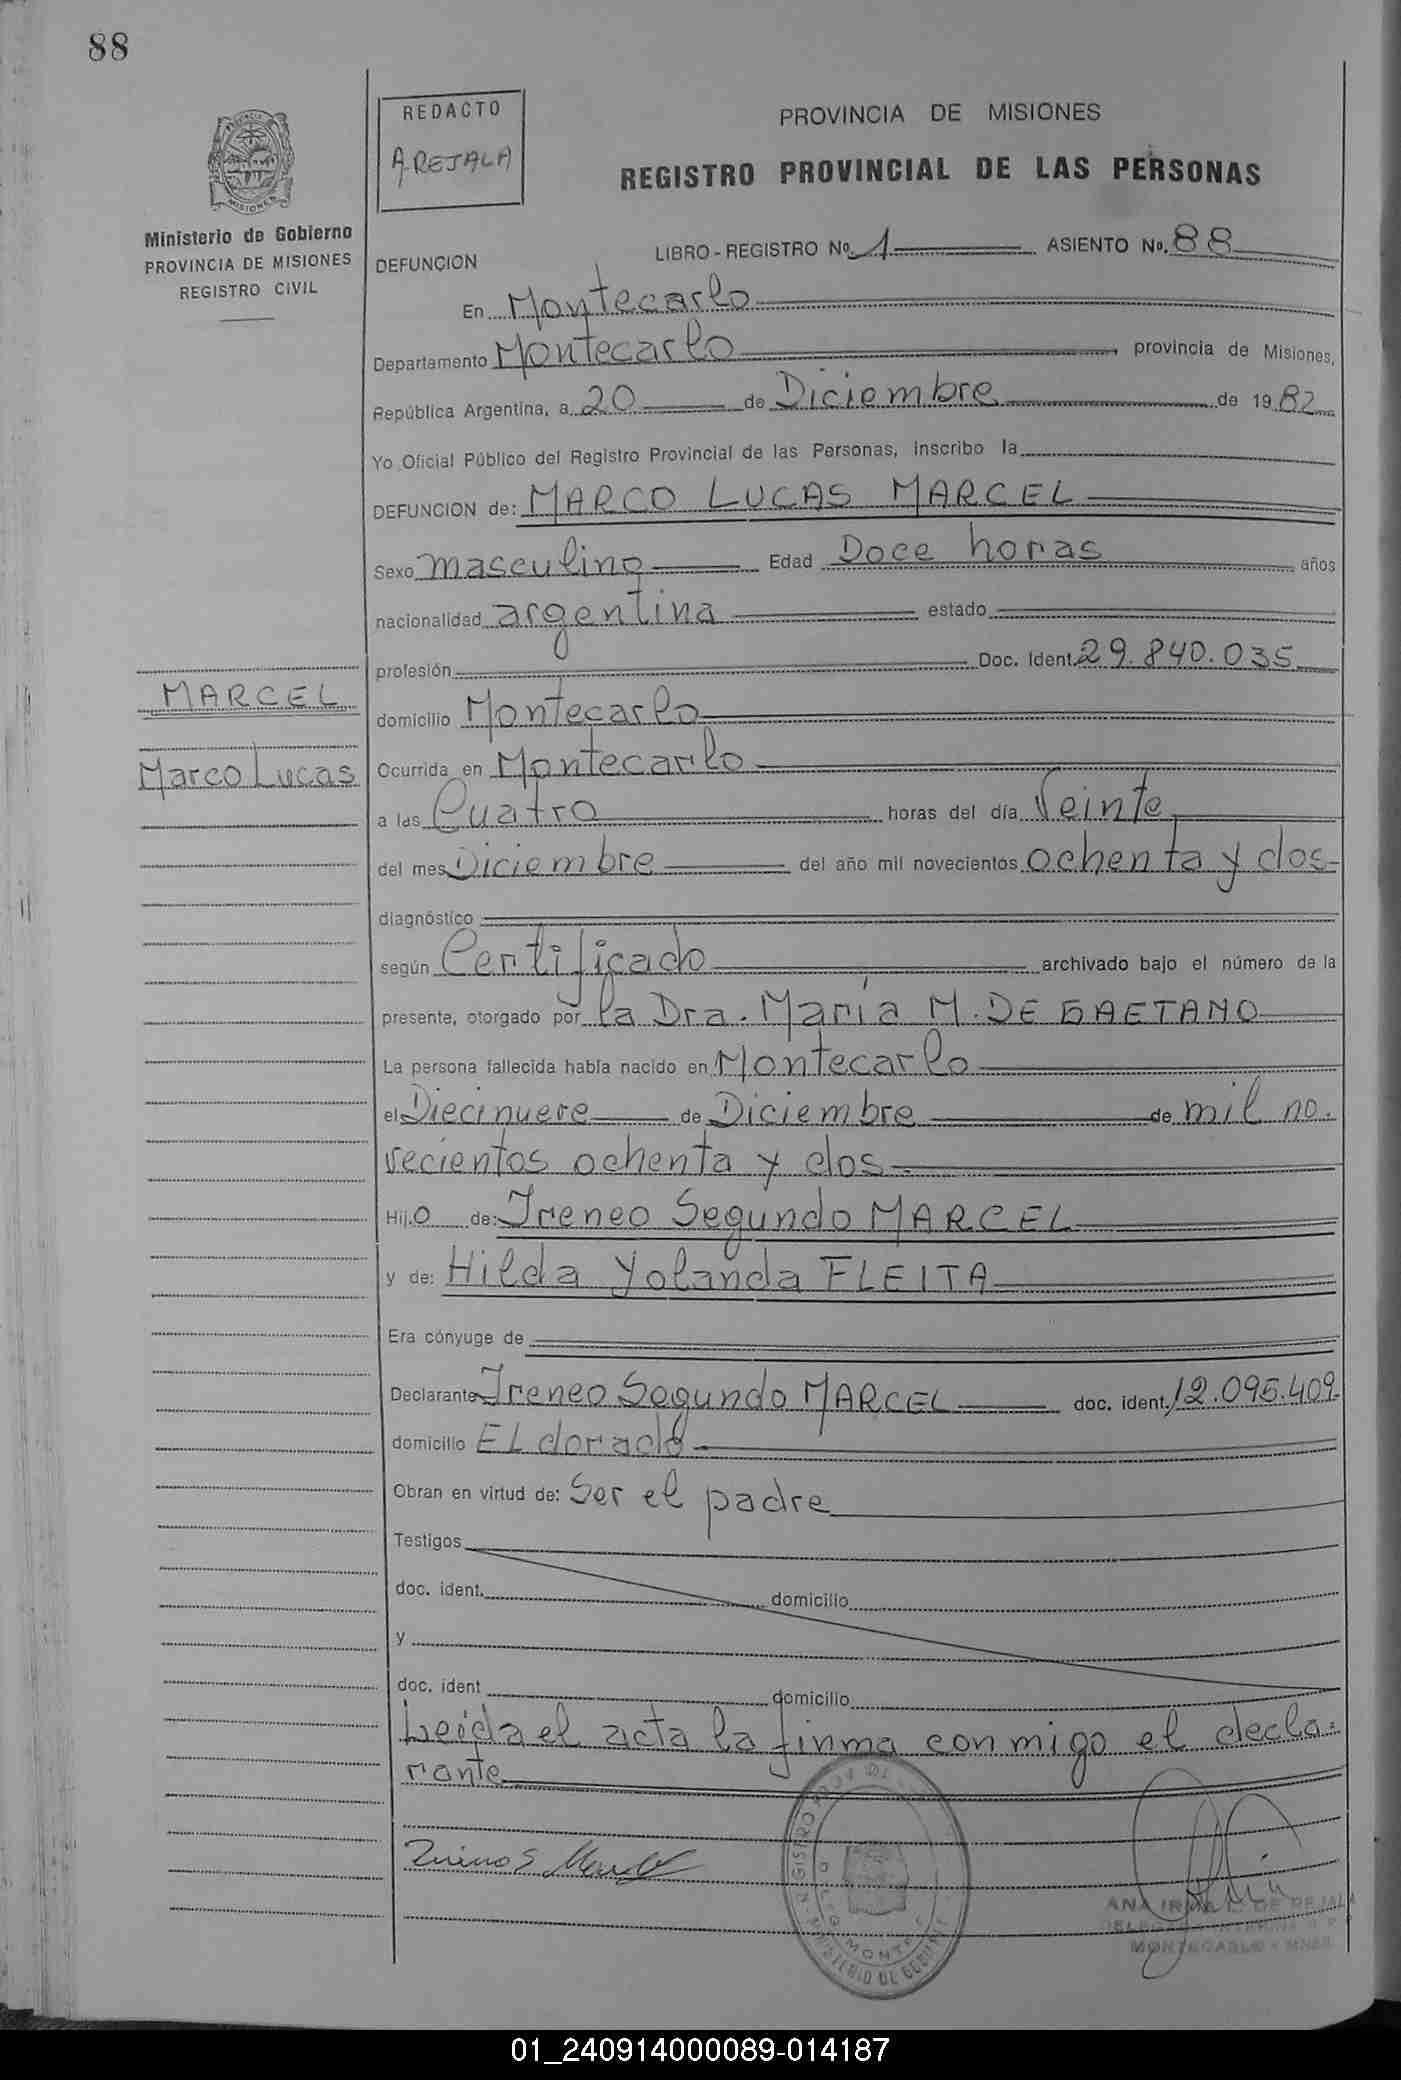 88
REDACTO
A. REJALA
PROVINCIA DE MISIONES
REGISTRO PROVINCIAL DE LAS PERSONAS
MISIONES
Ministerio de Gobierno
PROVINCIA DE MISIONES
REGISTRO CIVIL
DEFUNCION
LIBRO - REGISTRO Nº 1 ASIENTO Nº. 88
En Montecarlo
Departamento Montecarlo provincia de Misiones,
República Argentina, a 20 de Diciembre de 1982
Yo Oficial Público del Registro Provincial de las Personas, inscribo la
DEFUNCION de: MARCO LUCAS MARCEL
Sexo masculino Edad Doce horas años
nacionalidad argentina estado
profesión Doc. Ident. 29.840.035
MARCEL
domicilio Montecarlo
Marco Lucas
Ocurrida en Montecarlo
a las Cuatro horas del día Veinte
del mes Diciembre del año mil novecientos ochenta y dos
diagnóstico
según Certificado archivado bajo el número de la
presente, otorgado por la Dra. María M. DE GAETANO
La persona fallecida había nacido en Montecarlo
el Diecinueve de Diciembre de mil no.
vecientos ochenta y dos
Hij.o de: Ireneo Segundo MARCEL
y de: Hilda Yolanda FLEITA
Era cónyuge de
Declarante Ireneo Segundo MARCEL doc. ident. 12.096.409
domicilio ELdorado
Obran en virtud de: Ser el padre
Testigos
doc. ident. domicilio
y
doc. ident domicilio
Leida el acta la firma conmigo el decla-
rante
ANA IRMA DE REJALA
MONTECARLO - MNES
01_240914000089-014187